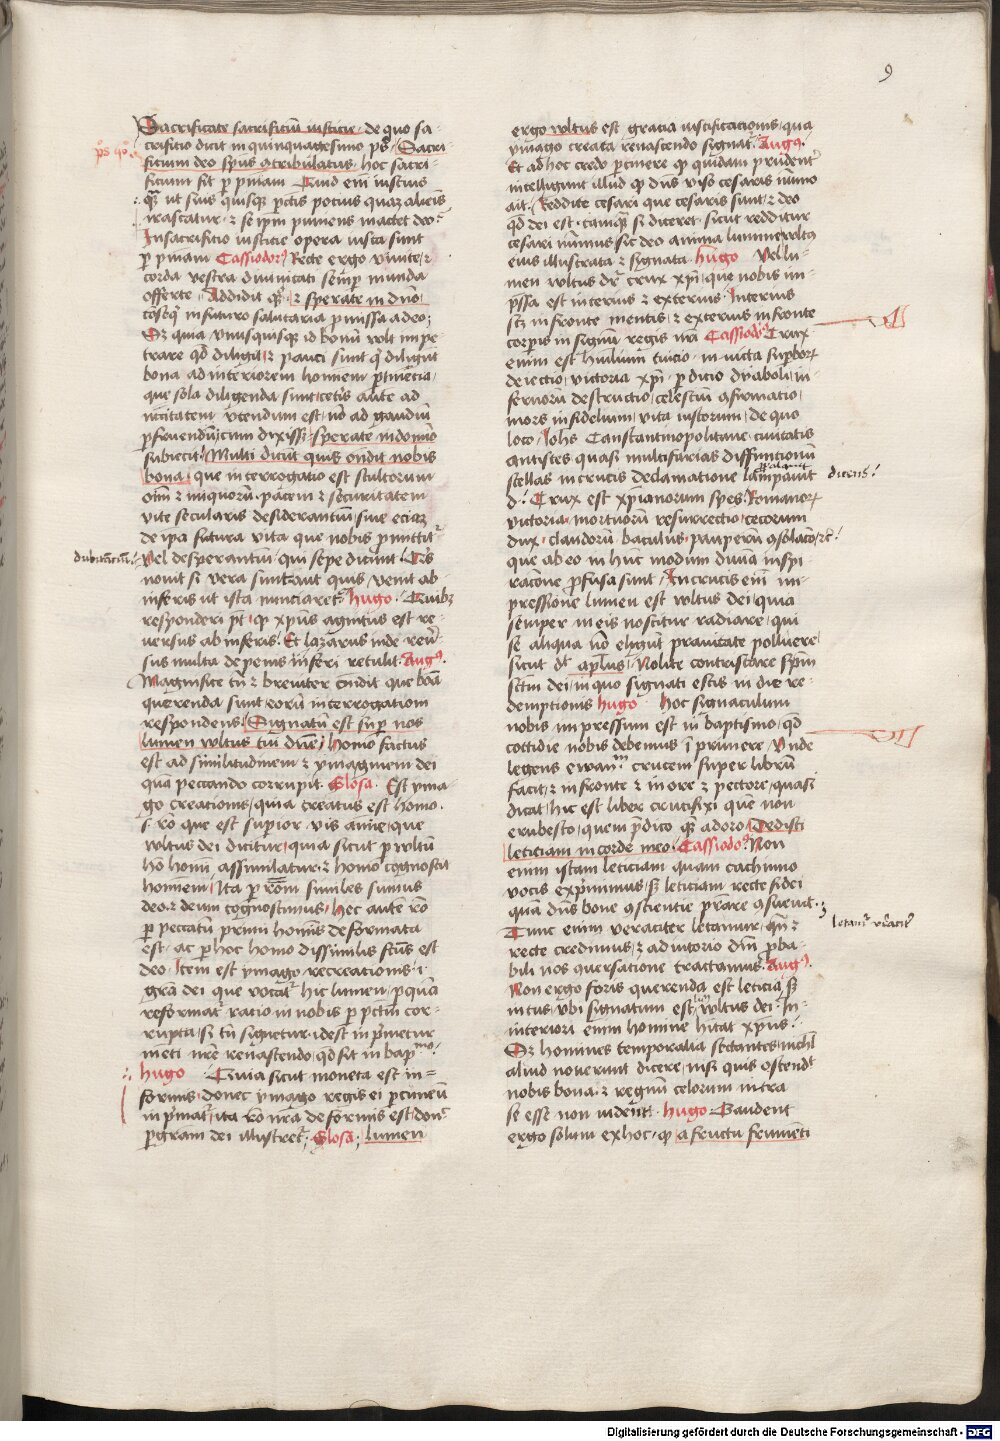 9
Sacrificate sacrificiū iusticie · de quo sa-
crificio dicit in quinquagesimo ps̄ · Sacri-
ficium deo sp̄us 9tribulatus · hoc sacri-
ficium fit p pn̄iam Quid em̄ iustius
qȝ ut suis quisqȝ pctis potius quaȝ alienis
irascatur · ⁊ se ip̄m puniens mactet deo
In sacrificio iusticie opera iusta sunt
p pn̄iam Cassiodorꝰ Recte ergo viuite · ⁊
corda vestra diuinitati semp munda
offerte · Addidit qȝ · ⁊ sperate in dn̄o
in futuro salutaria pmissa a deo
Sȝ quia vnusquisqȝ id bonū vult impe
trare qd̄ diligit · ⁊ pauci sunt q̄ diligūt
bona ad interiorem hominem ptinēcia ·
que sola diligenda sunt · ceteris aūte ad
necessitatem vtendum est · nō ad gaudiū
pfruendū · cum dixiss; sperate in domino
subiecit · Multi dicūt quis ondit nobis
bona · que interrogatio est stultorum
om̄i ⁊ iniquorū · pacem ⁊ securitatem
vite secularis desiderantiū · siue eciaȝ
de ip̄a futura vita que nobis pmittitᷣ
dubitātiū
vel desperantiū · qui sepe dicunt · Quis
nouit si vera sunt · aut quis venit ab
inferis ut ista nunciaret · hugo · Quibȝ
responderi pt̄ · qȝ xp̄us agnitus est re-
uersus ab inferis · Et lazarus inde reuer
sus multa de penis inferi retulit · Augꝰ ·
Magnifice tn̄ ⁊ breuiter ōndit que bōa
querenda sunt · eorū interrogationi
respondens · Signatū est sup nos
lumen vultus tui dn̄e · homo factus
est ad similitudinem · ⁊ ymaginem dei
quā peccando corrupit · Glosa · Est yma-
go creationis · quia creatus est homo ·
s · rō que est supior vis anīe · que
vultus dei dicitur · quia sicut p vultū
hō homī assimilatur · ⁊ homo cognoscit
hominem · Ita p rōem similes sumus
deo · ⁊ deum cognoscimus · hec autē rō
p peccatū primi hominis deformata
est · ac p hoc homo dissimilis fctus est
deo · Item est ymago recreationis · i ·
grā dei que vocatᷣ hic lumen · p quā
reformatᷣ ratio in nobis p pctm̄ cor-
rupta · si tn̄ signetur · idest imprimetur
menti nr̄e renascendo · qd̄ fit in bapmo
hugo · Quia sicut moneta est in-
formis · donec ymago regis ei p cuneū
imprimatᷣ · ita rō nr̄a deformis est · donec
p grām dei illustretᷣ ; Glosa ; Lumen
ergo vultus est gratia iustificationis · qua
ymago creata renascendo signatᷣ · Augꝰ ·
Et ad hoc credo ptinere qȝ quidam prudentᷣ
intelligunt illud qȝ dn̄s viso cesaris nūmo
ait · Reddite cesari que cesaris sunt · ⁊ deo
qd̄ dei est · tamqȝ si diceret · sicut redditur
cesari nūmus sic deo anima lumine vultꝰ
eius illustrata ⁊ signata · hugo Vel lu-
men vultus dr̄ crux xp̄i · que nobis im-
pressa est interius ⁊ exterius · Interius
s in fronte mentis · ⁊ exterius in fronte
corpis in signū regis nr̄i Cassiodꝰ Crux
enim est humilium tuicio · inuicta supborꝝ
deiectio · victoria xp̄i · pdicio dyaboli · in-
fernorū destructio · celestiū 9firmatio ·
mors infidelium · vita iustorum · de quo
loco · Iohs Constantinopolitane ciuitatis
antistes quasi multifarias diffunctionū
stellas in crucis declamatione lampauit dicens
d · Crux est xp̄ianorum spes · Romanorꝝ
victoria · mortuorū resurrectio · cecorum
dux · claudorū baculus · pauperū 9solacio · ⁊c̄
que ab eo in hunc modum diuina inspi-
racione pfusa sunt · In crucis em̄ im-
pressione lumen est vultus dei · quia
semper in eis noscitur radiare · qui
se aliqua nō elegūt prauitate polluere
sicut d̄t apl̄us · Nolite contristare sp̄m
sc̄tm dei · in quo signati estis in die re-
demptionis hugo · hoc signaculum
nobis impressum est in baptismo · qd̄
cottidie nobis debemus īprimere · Vnde
legens ewan crucem super librū
facit · ⁊ in fronte ⁊ in ore ⁊ pectore · quasi
dicat · hic est liber crucifixi quē non
erubesco · quem p̄dico qȝ adoro · Dedisti
leticiam in corde meo · Cassiodoꝰ Non
enim istam leticiam quam cachinno
vocis exprimimus · sȝ leticiam recte fidei
quā dn̄s bone 9scientie prestare 9sueuit ·
Tunc enim veraciter letamur · qn̄ ⁊ letamᷣ v̄acitᷣ
recte credimus · ⁊ adiutorio dn̄i proba-
bili nos 9uersatione tractamus · Augꝰ ·
Non ergo foris querenda est leticia · sȝ
intus · vbi signatum est lum̄ vultus dei · In-
interiori enim homine hītat xp̄us ·
Sȝ homines temporalia sectantes · nichil
aliud nouerunt dicere · nisi quis ostendit
nobis bona · ⁊ regnū celorum intra
se esse non viderunt · hugo · Gaudent
ergo solum ex hoc · qȝ a fructu frumēti